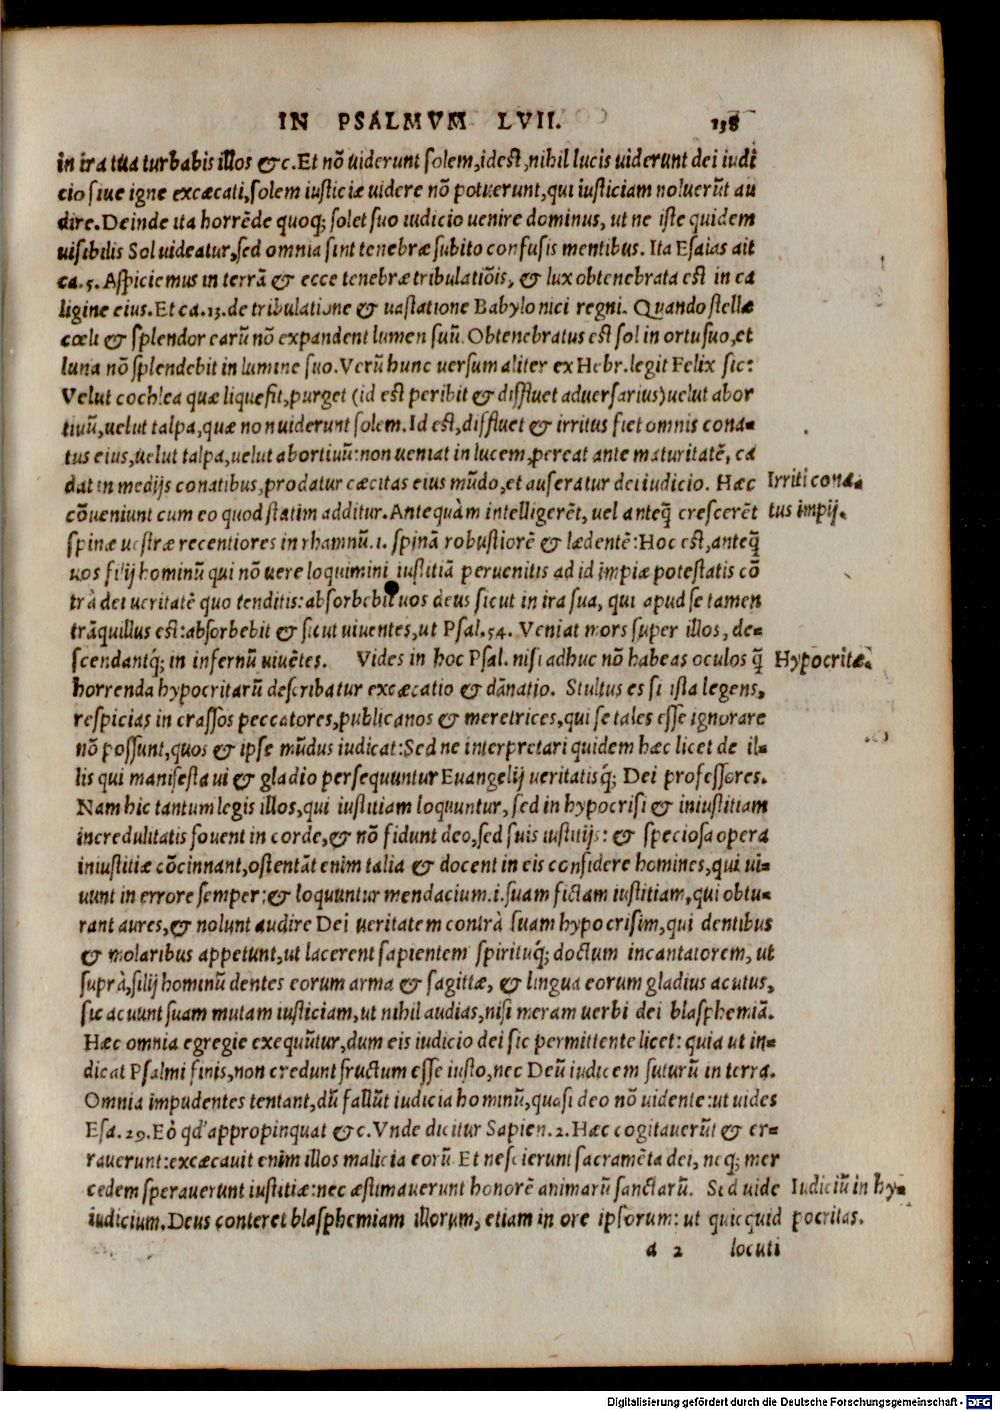 IN PSALMVM LVII. 138
in ira tua turbabis illos &c. Et nõ uiderunt solem, id est, nihil lucis uiderunt dei iudi
cio siue igne excæcati, solem iusticiæ uidere nõ potuerunt, qui iusticiam noluerũt au
dire. Deinde ita horrẽde quoq; solet suo iudicio uenire dominus, ut ne iste quidem
uisibilis Sol uideatur, sed omnia sint tenebræ subito confusis mentibus. Ita Esaias ait
ca. 5. Aspiciemus in terrã & ecce tenebræ tribulatiõis, & lux obtenebrata est in ca
ligine eius. Et ca. 13. de tribulatione & uastatione Babylonici regni. Quando stellæ
cœli & splendor earũ nõ expandent lumen suũ. Obtenebratus est sol in ortu suo, et
luna nõ splendebit in lumine suo. Verũ hunc uersum aliter ex Hebr. legit Felix sic:
Velut cochlea quæ liquefit, purget (id est peribit & diffluet aduersarius) uelut abor
tiuũ, uelut talpa, quæ non uiderunt solem. Id est, diffluet & irritus fiet omnis cona-
tus eius, uelut talpa, uelut abortiuũ: non ueniat in lucem, pereat ante maturitatẽ, ca
dat in medijs conatibus, prodatur cæcitas eius mũdo, et auferatur dei iudicio. Hæc
Irriti cona-
cõueniunt cum eo quod statim additur. Antequàm intelligerẽt, uel anteq̃ crescerẽt
tus impij.
spinæ uestræ recentiores in rhamnũ. i. spinã robustiorẽ & lædentẽ: Hoc est, anteq̃
uos filij hominũ qui nõ uere loquimini iustitiã peruenitis ad id impiæ potestatis cõ
trà dei ueritatẽ quo tenditis: absorbebit uos deus sicut in ira sua, qui apud se tamen
trãquillus est: absorbebit & sicut uiuentes, ut Psal. 54. Veniat mors super illos, de-
scendantq́; in infernũ uiuẽtes. Vides in hoc Psal. nisi adhuc nõ habeas oculos q̃
Hypocritæ.
horrenda hypocritarũ describatur excæcatio & dãnatio. Stultus es si ista legens,
respicias in crassos peccatores, publicanos & meretrices, qui se tales esse ignorare
nõ possunt, quos & ipse mũdus iudicat: Sed ne interpretari quidem hæc licet de il-
lis qui manifesta ui & gladio persequuntur Euangelij ueritatisq́; Dei professores.
Nam hic tantum legis illos, qui iustitiam loquuntur, sed in hypocrisi & iniustitiam
incredulitatis fouent in corde, & nõ fidunt deo, sed suis iustitijs: & speciosa opera
iniustitiæ cõcinnant, ostentãt enim talia & docent in eis confidere homines, qui ui-
uunt in errore semper: & loquuntur mendacium. i. suam fictam iustitiam, qui obtu-
rant aures, & nolunt audire Dei ueritatem contrà suam hypocrisim, qui dentibus
& molaribus appetunt, ut lacerent sapientem spirituq́; doctum incantatorem, ut
suprà, filij hominũ dentes eorum arma & sagittæ, & lingua eorum gladius acutus,
sic acuunt suam mutam iusticiam, ut nihil audias, nisi meram uerbi dei blasphemiã.
Hæc omnia egregie exequũtur, dum eis iudicio dei sic permittente licet: quia ut in-
dicat Psalmi finis, non credunt fructum esse iusto, nec Deũ iudicem futurũ in terra.
Omnia impudentes tentant, dũ fallũt iudicia hominũ, quasi deo nõ uidente: ut uides
Esa. 29. Eò qd' appropinquat &c. Vnde dicitur Sapien. 2. Hæc cogitauerũt & er-
rauerunt: excæcauit enim illos malicia eorũ Et nescierunt sacramẽta dei, neq; mer
cedem sperauerunt iustitiæ: nec æstimauerunt honorẽ animarũ sanctarũ. Sed uide
Iudiciũ in hy-
iudicium. Deus conteret blasphemiam illorum, etiam in ore ipsorum: ut quicquid
pocritas.
a 2 locuti
Digitalisierung gefördert durch die Deutsche Forschungsgemeinschaft - DFG